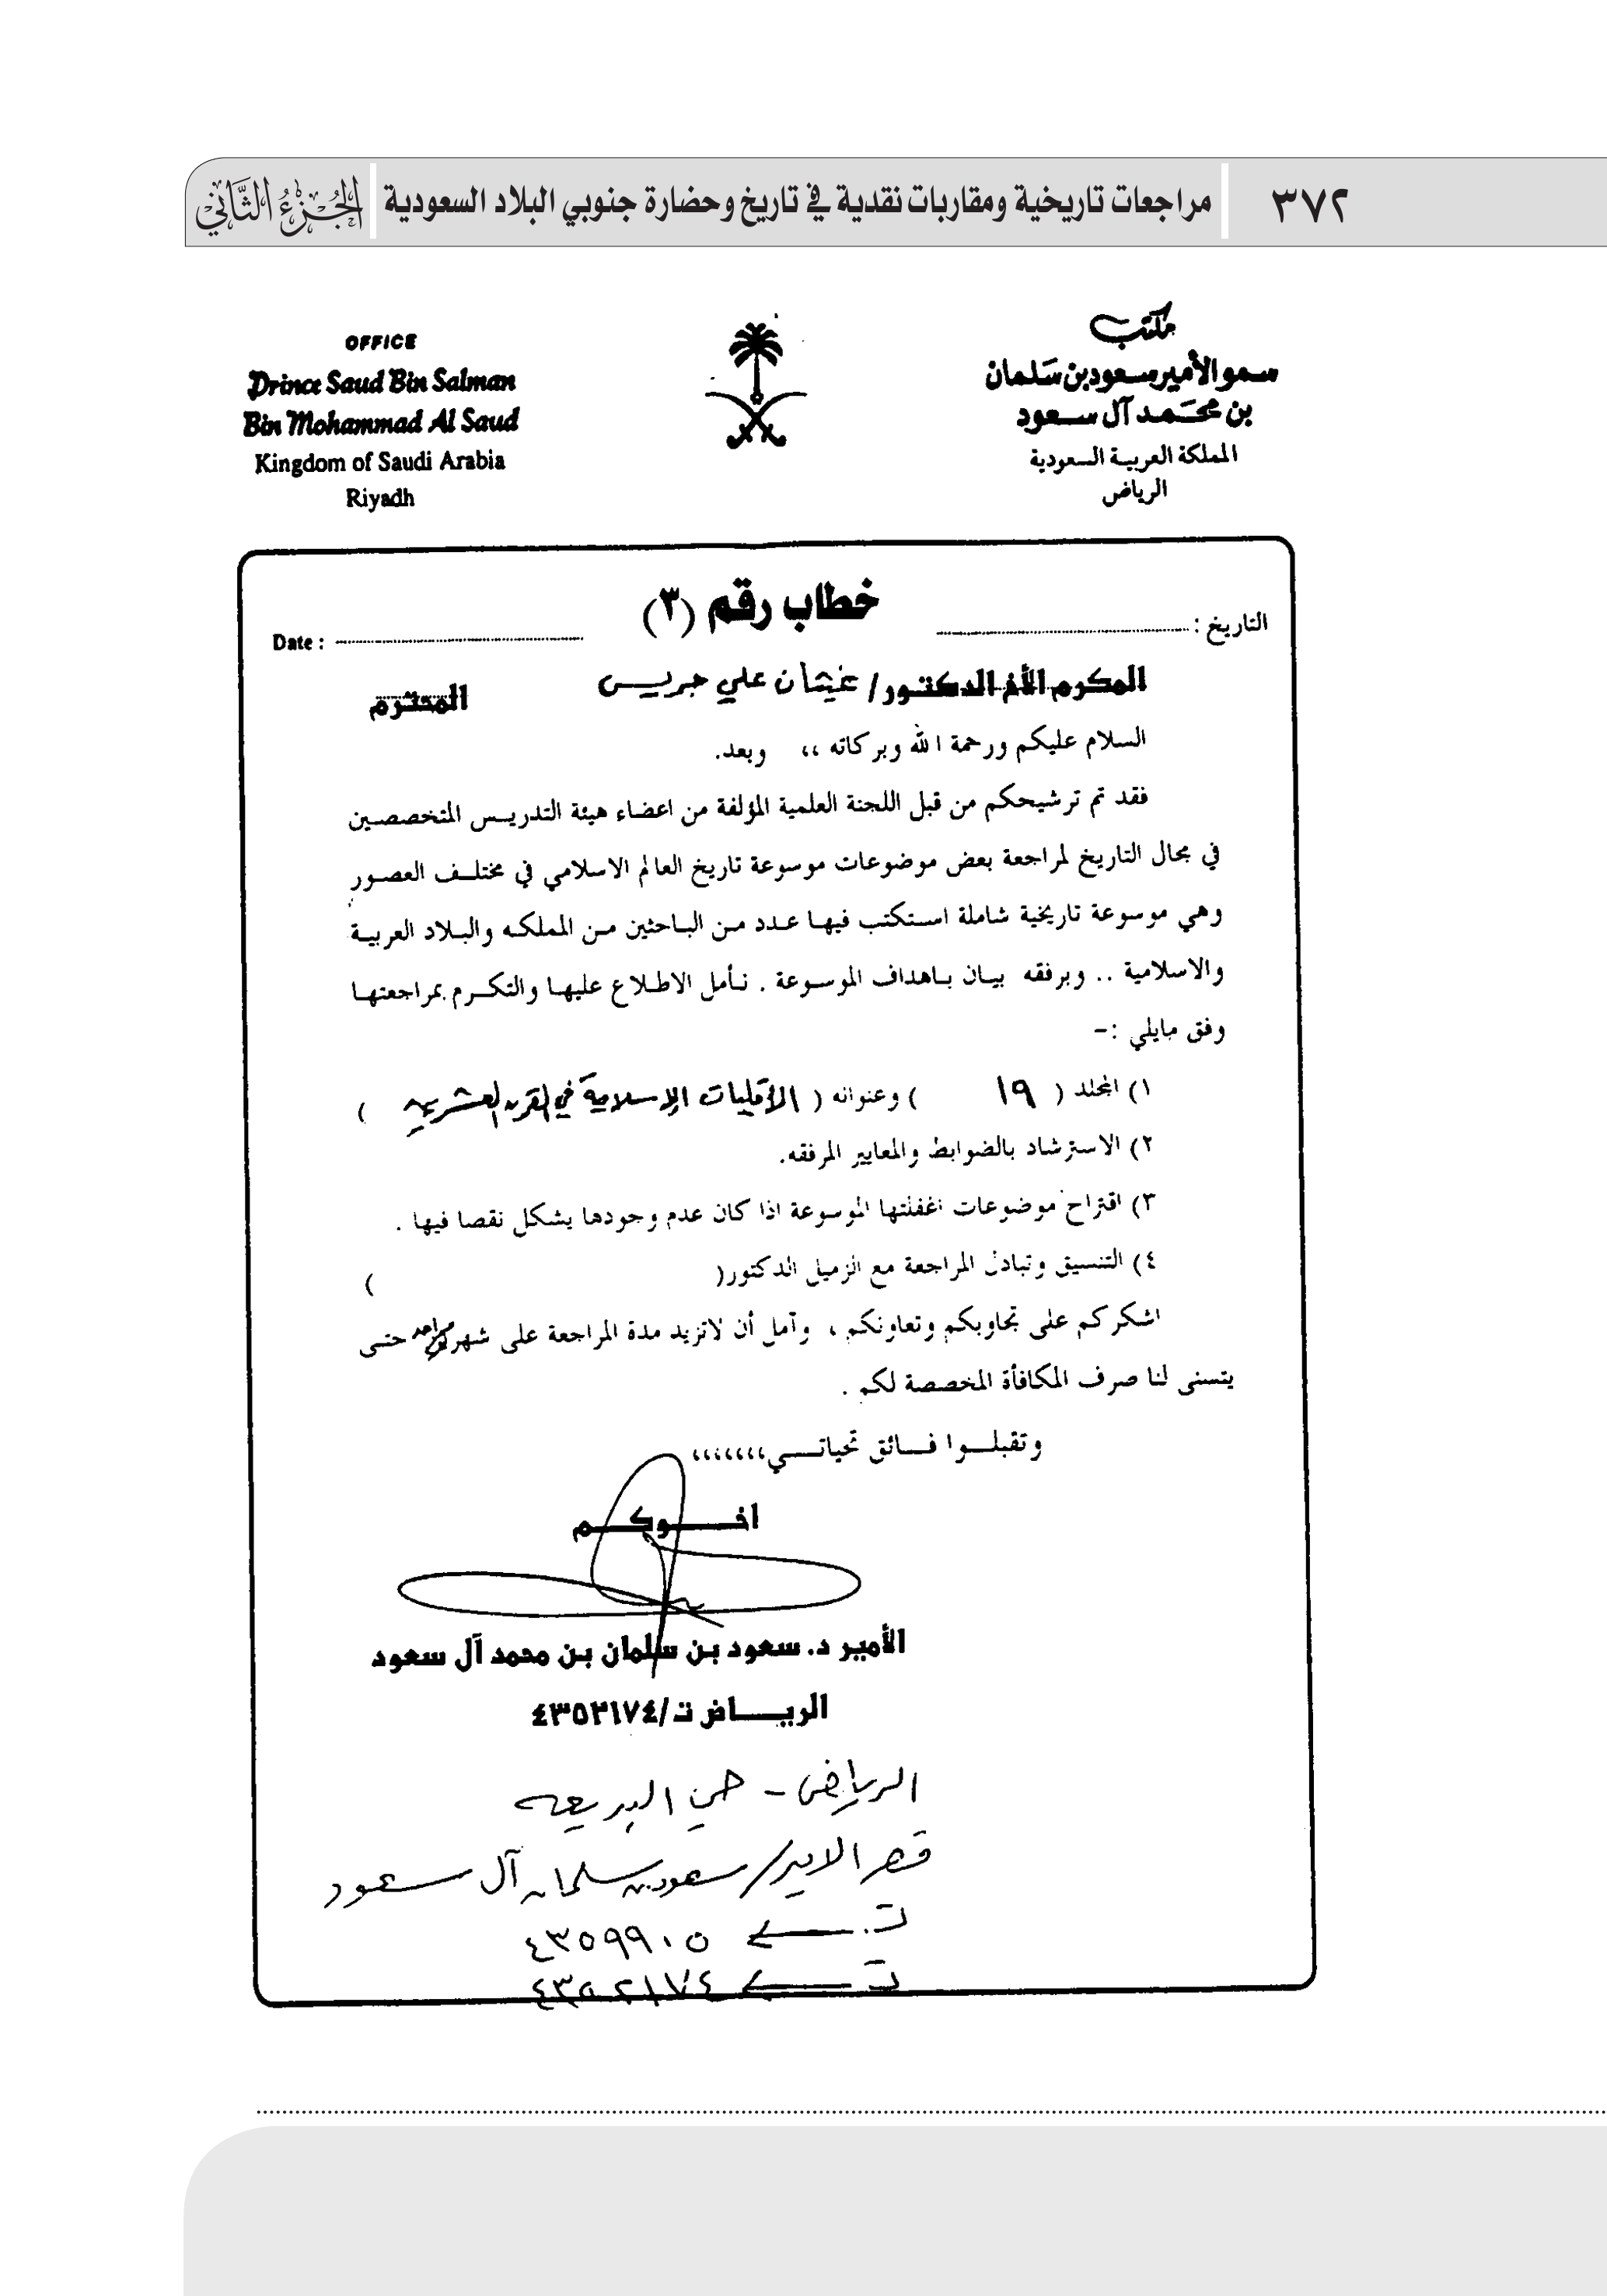 ٣٧٢ مراجعات تاريخية ومقاربات نقدية في تاريخ وحضارة جنوبي البلاد السعودية الجُزءُ الثَّاني
مكتب
سمو الأمير سعود بن سَلمان
بن محمَد آل سعود
المملكة العربية السعودية
الرياض
OFFICE
Prince Saud Bin Salman
Bin Mohammad Al Saud
Kingdom of Saudi Arabia
Riyadh
خطاب رقم (٣)
التاريخ : Date :
المكرم الأخ الدكتور/ غيثان علي جريس المحترم
السلام عليكم ورحمة الله وبركاته ،، وبعد.
فقد تم ترشيحكم من قبل اللجنة العلمية المؤلفة من اعضاء هيئة التدريس المتخصصين
في مجال التاريخ لمراجعة بعض موضوعات موسوعة تاريخ العالم الاسلامي في مختلف العصور
وهي موسوعة تاريخية شاملة استكتب فيها عدد من الباحثين من المملكه والبلاد العربية
والاسلامية .. وبرفقه بيان باهداف الموسوعة . نأمل الاطلاع عليها والتكرم بمراجعتها
وفق مايلي :-
١) المجلد ( ١٩ ) وعنوانه ( الأقليات الإسلامية في القرن العشرين )
٢) الاسترشاد بالضوابط والمعايير المرفقه.
٣) اقتراح موضوعات اغفلتها الموسوعة اذا كان عدم وجودها يشكل نقصا فيها .
٤) التنسيق وتبادل المراجعة مع الزميل الدكتور( )
اشكركم على تجاوبكم وتعاونكم ، وآمل أن لاتزيد مدة المراجعة على شهر واحد حتى
يتسنى لنا صرف المكافأة المخصصة لكم .
وتقبلوا فائق تحياتي،،،،،،،
اخوكم
الأمير د. سعود بن سلمان بن محمد آل سعود
الرياض ت/٤٣٥٢١٧٤
الرياض - حي البديعه
قصر الامير/ سعود بن سلمان آل سعود
ت. ٤٣٥٩٩٠٥
ت ٤٣٥٢١٧٤